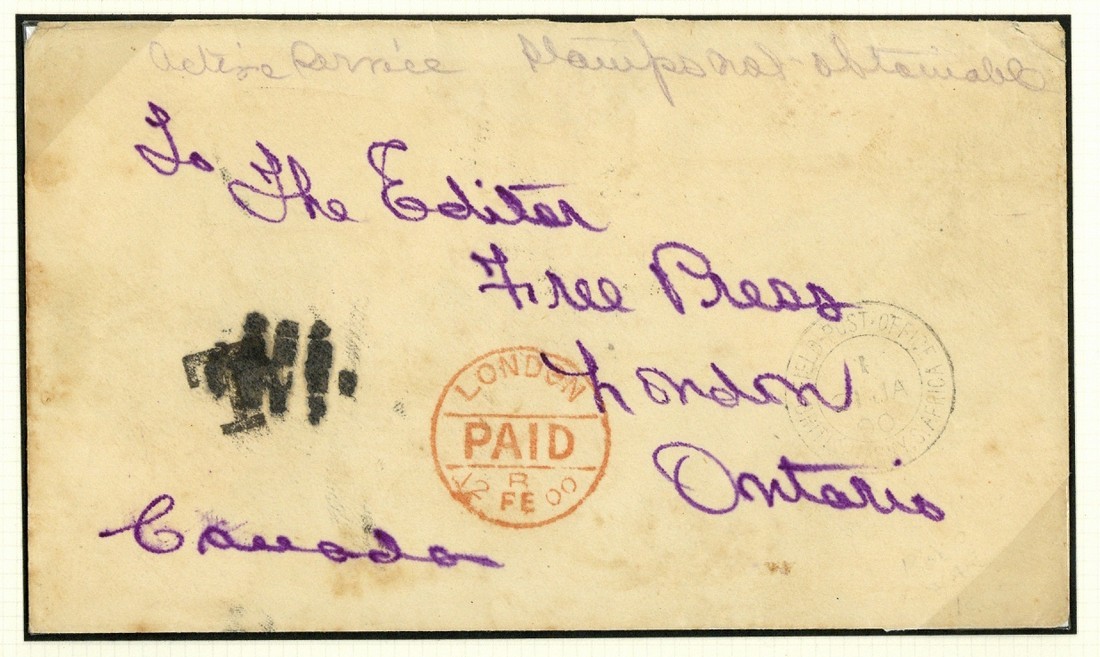 Active Service Stamps not obtainable
To The Editor
Free Press
London
Ontario
Canada
LONDON
PAID
R
FE 00
FIELD-POST-OFFICE
JA
00
AFRICA